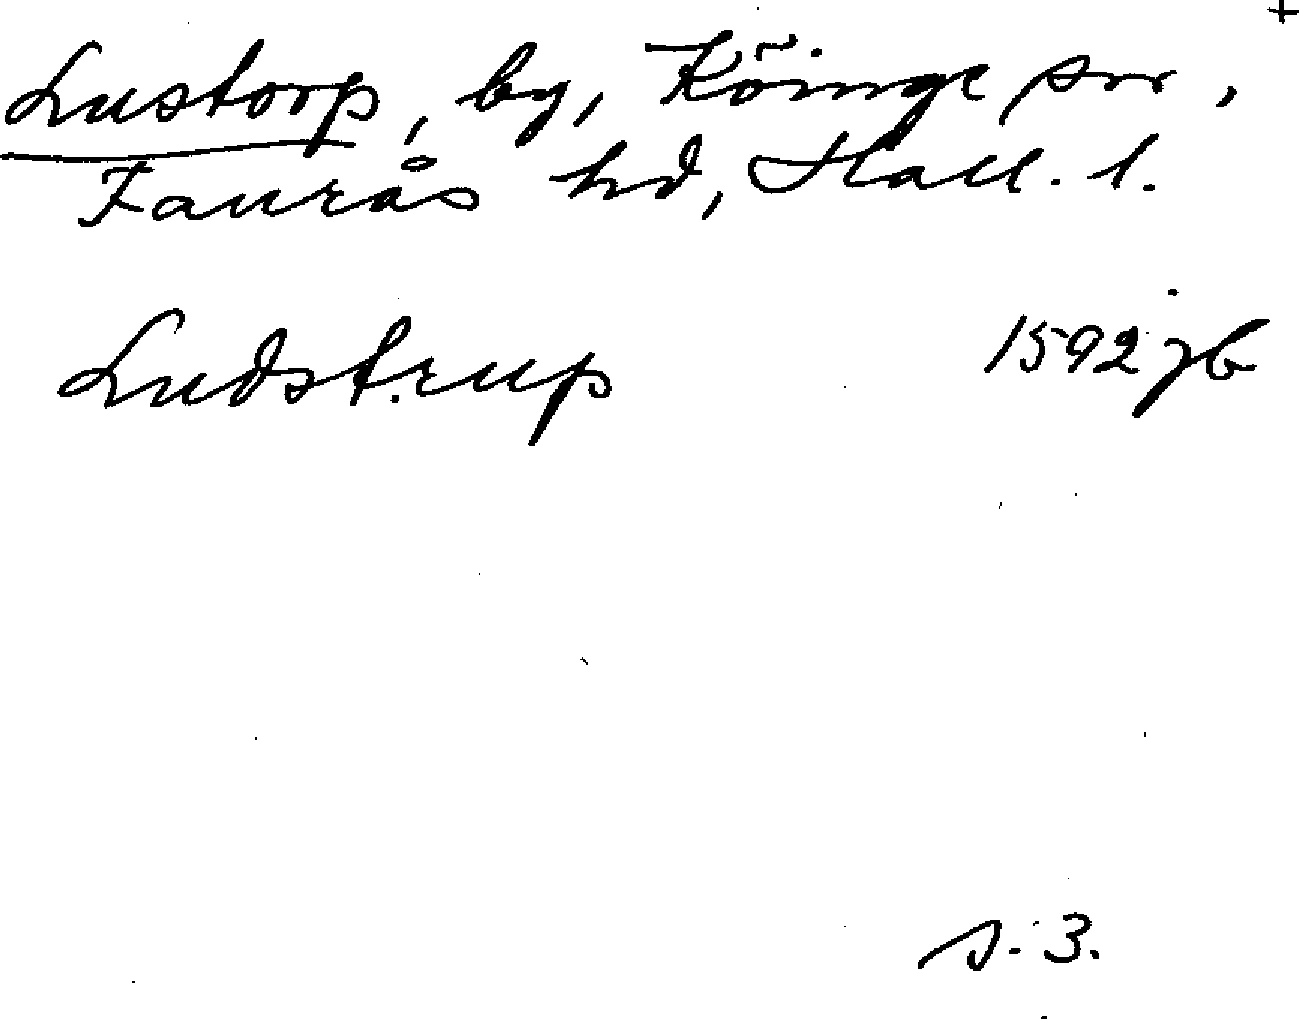 +
Lustorp, by, Köinge sn,
Faurås hd, Hall. l.
Ludstrup 1592 jb
s. 3.